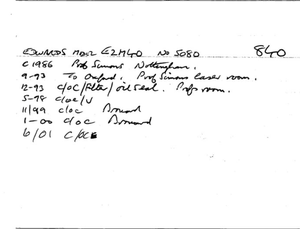 EDWARDS MODEL E2M40 NO 5080 840
C 1986 Prof Simons Nottingham.
9-93 To Oxford. Prof Simons laser room.
12-93 C/OC/Filter/oil seal. Profs room.
5-98 C/OC/V
11/99 C/OC
1-00 C/OC
6/01 C/OC